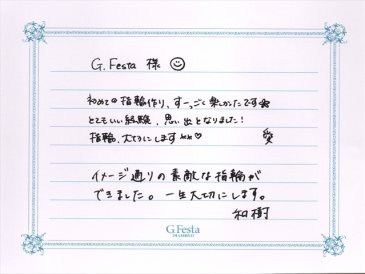 G.Festa 様
初めての指輪作り、すーっごく楽しかったです
とてもいい経験、思い出となりました!
指輪、大切にします♡
愛
イメージ通りの素敵な指輪が
できました。一生大切にします。
和樹
G.Festa